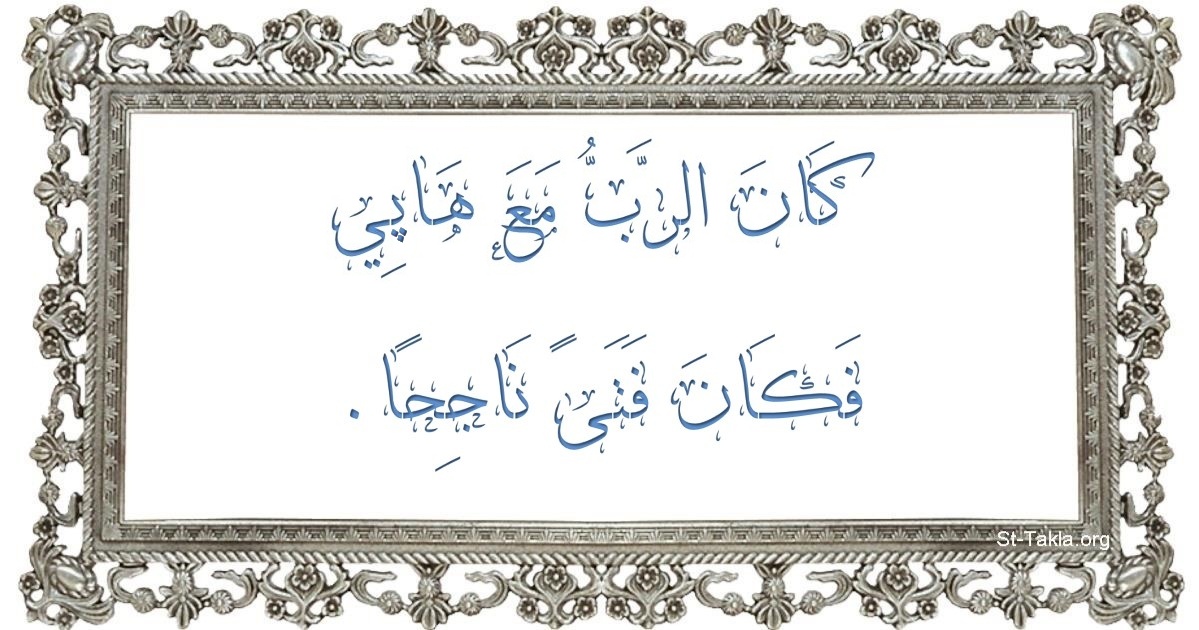 كَانَ الرَّبُّ مَعَ هَاپِي
فَكَانَ فَتَىً نَاجِحًا .
St-Takla.org